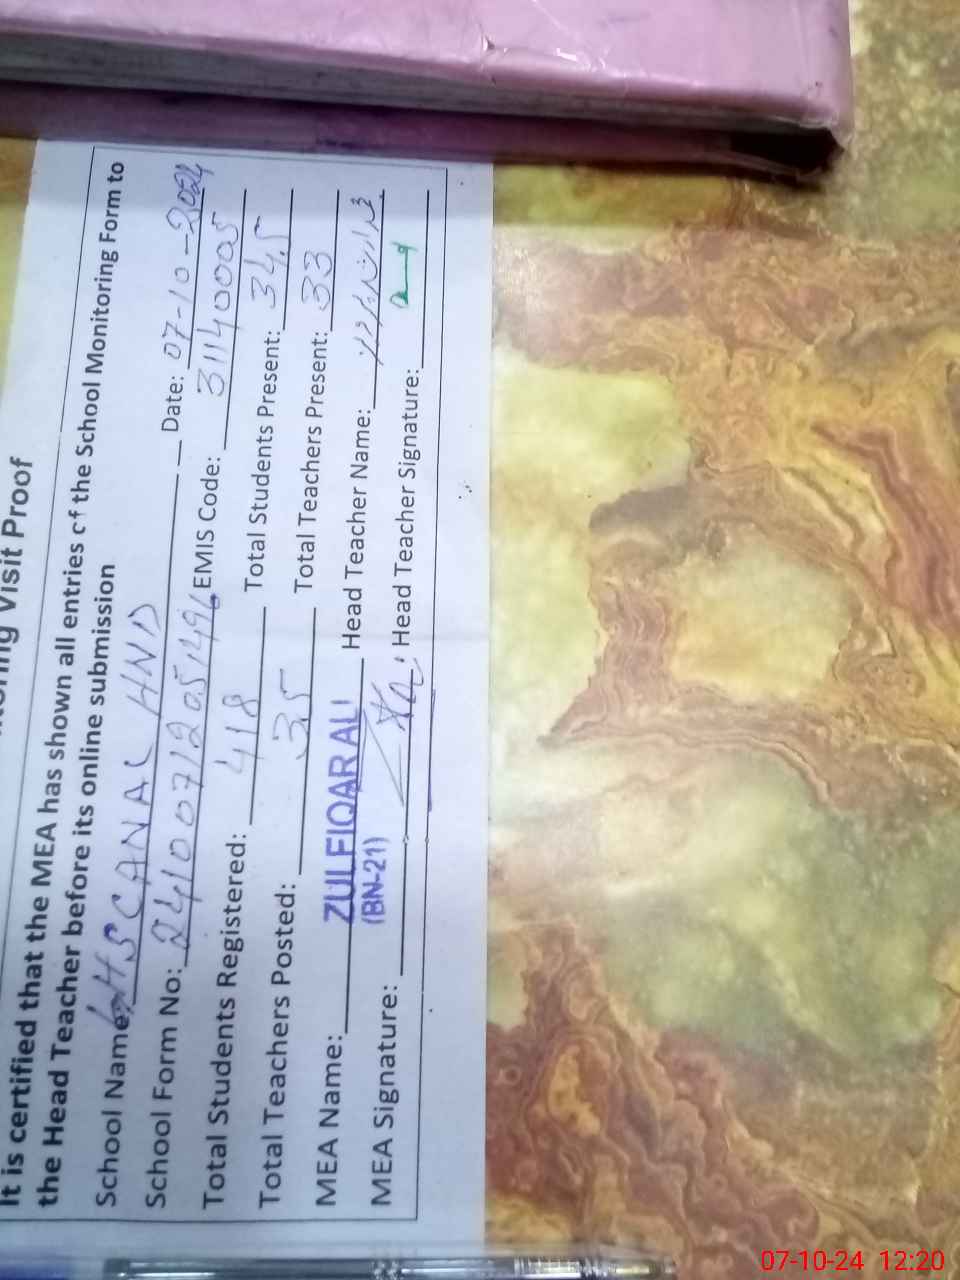 Visit Proof
It is certified that the MEA has shown all entries of the School Monitoring Form to
the Head Teacher before its online submission
School Name: GHS CANAL HND Date: 07-10-2024
School Form No: EMIS Code: 31140005
Total Students Registered: 418 Total Students Present: 345
Total Teachers Posted: 35 Total Teachers Present: 33
MEA Name: ZULFIQAR ALI Head Teacher Name:
(BN-21)
MEA Signature: Head Teacher Signature:
07-10-24 12:20